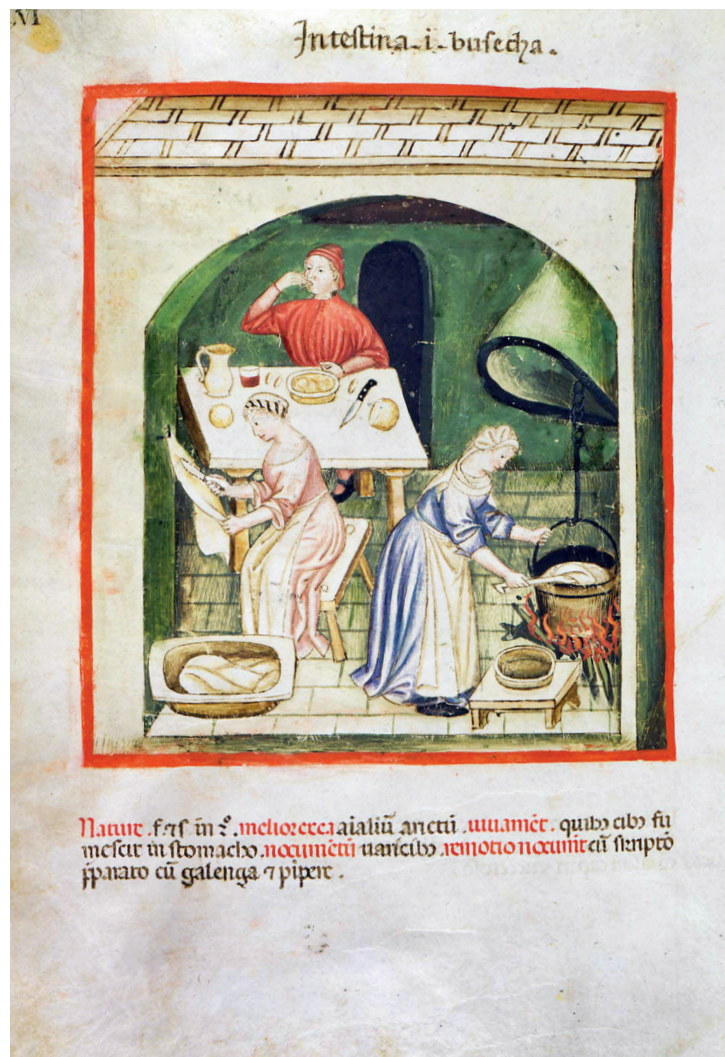 XVI
Intestina .i. busecha.
Nature. f. ⁊ s. in 2°. melior ex ea aĩaliũ arietũ. iuuamẽt. quibꝰ cibꝰ fu
mescit in stomacho. nocumẽtũ uaricibꝰ. remotio nocumẽt cũ sirupo
p̃parato cũ galenga ⁊ pipere.